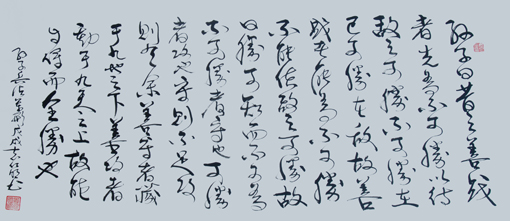 孙子曰昔之善战
者先为不可胜以待
敌之可胜不可胜在
己可胜在敌故善
战者能为不可胜
不能使敌之可胜故
曰胜可知而不可为
不可胜者守也可胜
者攻也守则不足攻
则有余善守者藏
于九地之下善攻者
动于九天之上故能
自保而全胜也
孙子兵法 戊戌 书